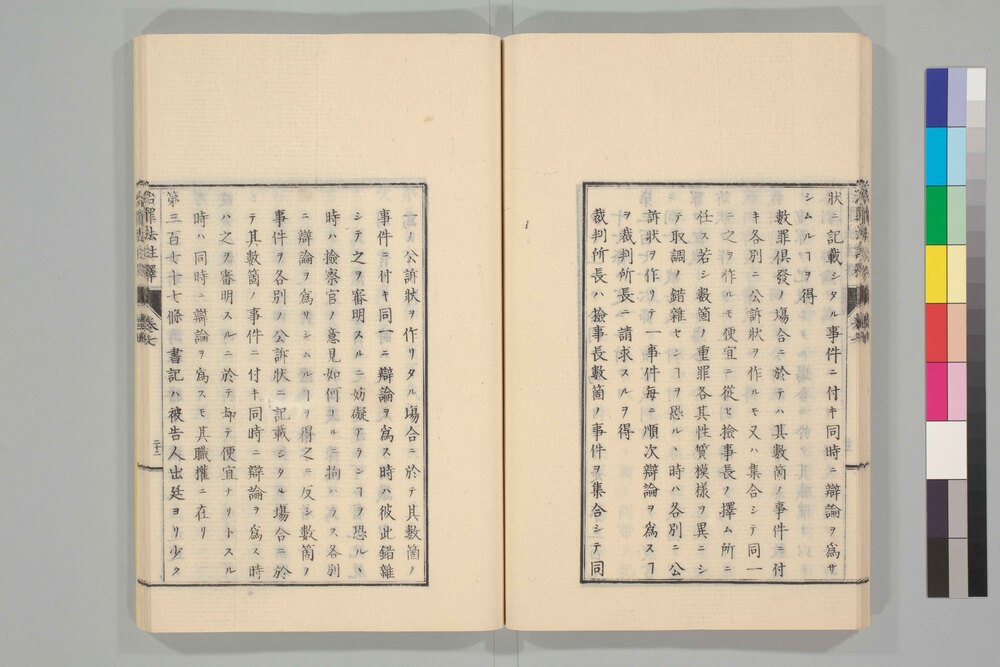 狀ニ記載シタル事件ニ付キ同時ニ辯論ヲ爲サ
シムルヿヲ得
數罪俱發ノ塲合ニ於テハ其數箇ノ事件ニ付
キ各別ニ公訴狀ヲ作ルモ又ハ集合シテ同一
ニ之ヲ作ルモ便宜ニ從ヒ撿事長ノ擇ム所ニ
任ス若シ數箇ノ重罪各其性質模樣ヲ異ニシ
テ取調ノ錯雜センヿヲ恐ルヽ時ハ各別ニ公
訴狀ヲ作リテ一事件每ニ順次辯論ヲ爲スヿ
ヲ裁判所長ニ請求スルヲ得
裁判所長ハ撿事長數箇ノ事件ヲ集合シテ同
治罪法註釋
卷七
一ノ公訴狀ヲ作リタル塲合ニ於テ其數箇ノ
事件ニ付キ同一ニ辯論ヲ爲ス時ハ彼此錯雜
シテ之ヲ審明スルニ妨礙アランヿヲ恐ルヽ
時ハ撿察官ノ意見如何ニ拘ハラス各別
ニ辯論ヲ爲サシムルヿヲ得之ニ反シ數箇ノ
事件ヲ各別ノ公訴狀ニ記載シタル塲合ニ於
テ其數箇ノ事件ニ付キ同時ニ辯論ヲ爲ス時
ハ之ヲ審明スルニ於テ却テ便宜ナリトスル
時ハ同時ニ辯論ヲ爲スモ其職權ニ在リ
第三百七十七條 書記ハ被告人出廷ヨリ少ク
治罪法註釋
卷七
二十二